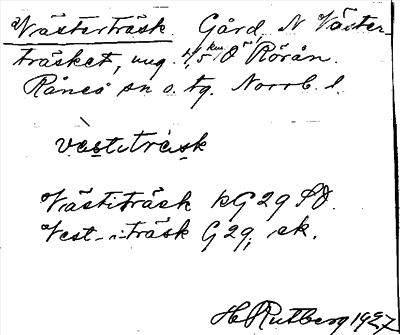 Västerträsk. Gård, N Väster-
träsket, ung. 1,5 km Ö Rörån.
Råneå sn o. tg. Norrb. l.
västiträsk
Västiträsk KG29 SO.
Vest-iträsk G29, ek.
H Rutberg 1927